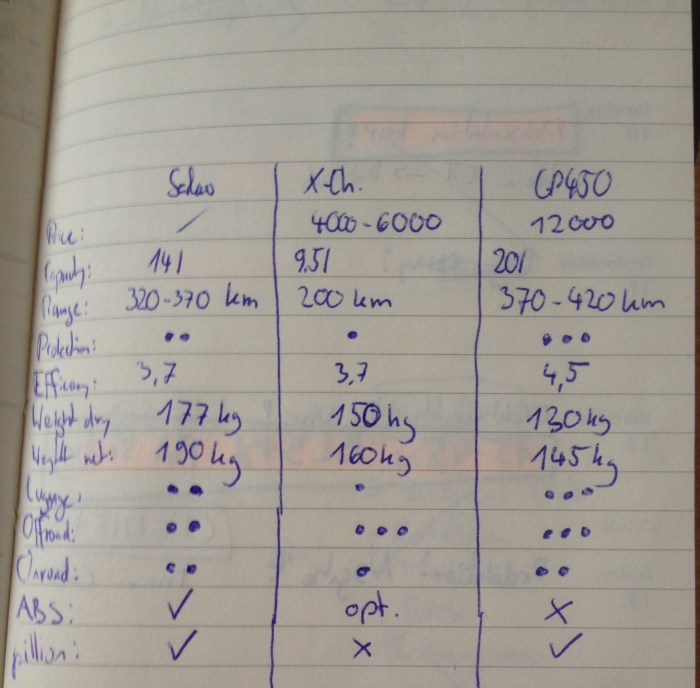 X-Ch. CP450
Price: / 4000-6000 12000
Capacity: 14l 9,5l 20l
Range: 320-370 km 200 km 370-420 km
Protection: •• • •••
Efficany: 3,7 3,7 4,5
Weight dry 177 kg 150 kg 130 kg
Weight wet: 190 kg 160 kg 145 kg
Luggage: •• • •••
Offroad: •• ••• •••
Onroad: •• • ••
ABS: ✓ opt. ×
pillion: ✓ × ✓